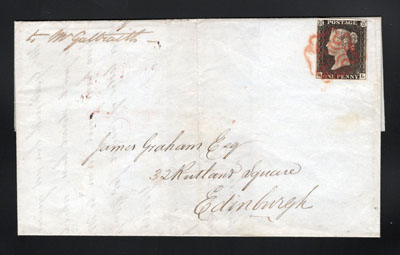 to Mr Galbraith
POSTAGE
ONE PENNY
James Graham Esq
32 Rutland Square
Edinburgh